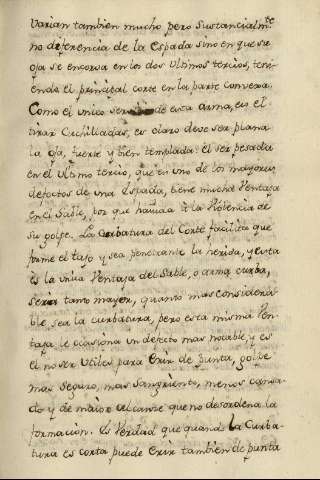 Varian tambien mucho pero Sustancialm.te
no deferencia de la Espada sino en que su
oja se encorva en los dos Ultimos tercios, teni-
endo el principal corte en la parte Convexa.
Como el unico servicio de esta arma, es el
tirar Cuchilladas, es claro deve ser plana
la oja, fuerte y bien templada. el ser pesada
en el Ultimo tercio, que es uno de los mayores
defectos de una Espada, tiene mucha Ventaja
en el Sable, por que la Potencia de
su golpe. La Curbatura del Corte facilita que
forme el tajo y sea penetrante la herida, y esta
es la unica Ventaja del Sable, o arma curba,
seria tanto mayor, quanto mas considera-
ble sea la curbatura, pero esta misma Ven-
taja le ocasiona un defecto mas notable y es
el no ser Utiles para Erir de punta, golpe
mas Seguro, mas Sangriento, menos cansa-
do y de maior alcanse que no desordena la
formacion. Es Verdad que quando la Curba-
tura es corta puede Erir tambien de punta